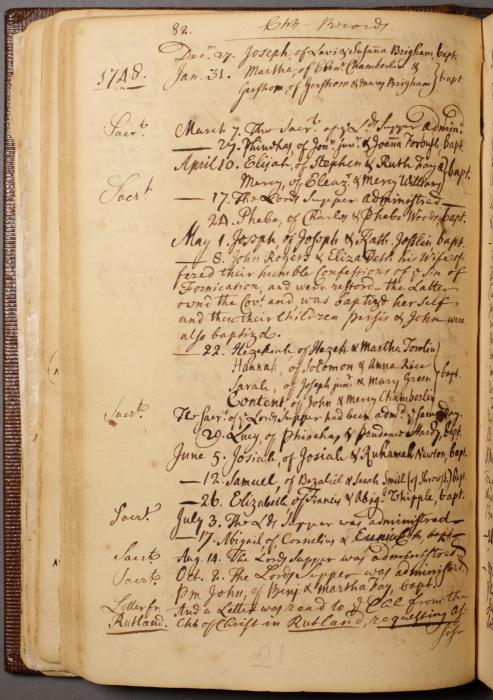 82. Chh - Records
Decr. 27. Joseph, of Levi & Susana Brigham, bapt.
1748. Jan. 31. Martha, of Ebenr. Chamberlin &
Gershom, of Gershom & mary Brigham } bapt.
Sacrt. March 7. The Sacrt. of ye Lds Supper admind.
— 27. Phinehas, of Jonn. junr. & Joanna Forbush, bapt
April 10. Elijah, of Stephen & Ruth Fay &
Mercy, of Eleazr. & Mercy Williams } bapt.
Sacrt — 17. The Lords Supper administred —
24. Phebe, of Charles & Phebe Woods, bapt.
May 1. Joseph, of Joseph & Kath. Joslin, bapt.
— 8. John Rogers & Elizabeth his Wife of-
fered their humble Confessions of ye Sin of
Fornication, and were restord - the Latter
ownd the Covt. and was baptizd herself
and then their Children Persis & John were
also baptizd.
— 22. Hezekiah of Hezeh. & Martha Tomlin
Hannah, of Solomon & Anna Rice
Sarah, of Joseph junr. & Mary Green } bapt.
Content of John & Mercy Chamberlin
Sacrt. The Sacrt. of ye Lords Supper had been admd. ye same day.
29. Lucy, of Phinehas & Prudence Hardy, bapt.
June 5. Josiah, of Josiah & Ruhamah Newton, bapt.
— 12. Samuel, of Bezaliel & Sarah Smith (of Shrewsb.) bapt.
— 26. Elizabeth of Francis & Abig. Whipple, bapt.
Sacrt. July 3. The Lds Supper was administred
— 17. Abigail of Cornelius & bapt.
Sacrt. Aug. 14. The Lords Supper was administred
Sacrt. Oct. 2. The Lords Supper was administred
P.m. John, of Benj. & Martha Fay, bapt.
Letter fr. And a Letter was read to ye Chh from the
Rutland. Chh of Christ in Rutland, requesting As-
sist
21